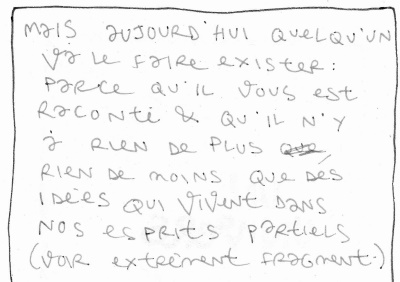 mais aujourd'hui quelqu'un
va le faire exister :
parce qu'il vous est
raconté & qu'il n'y
a rien de plus
rien de moins que des
idées qui vivent dans
nos esprits partiels
(voir extrement fragment.)